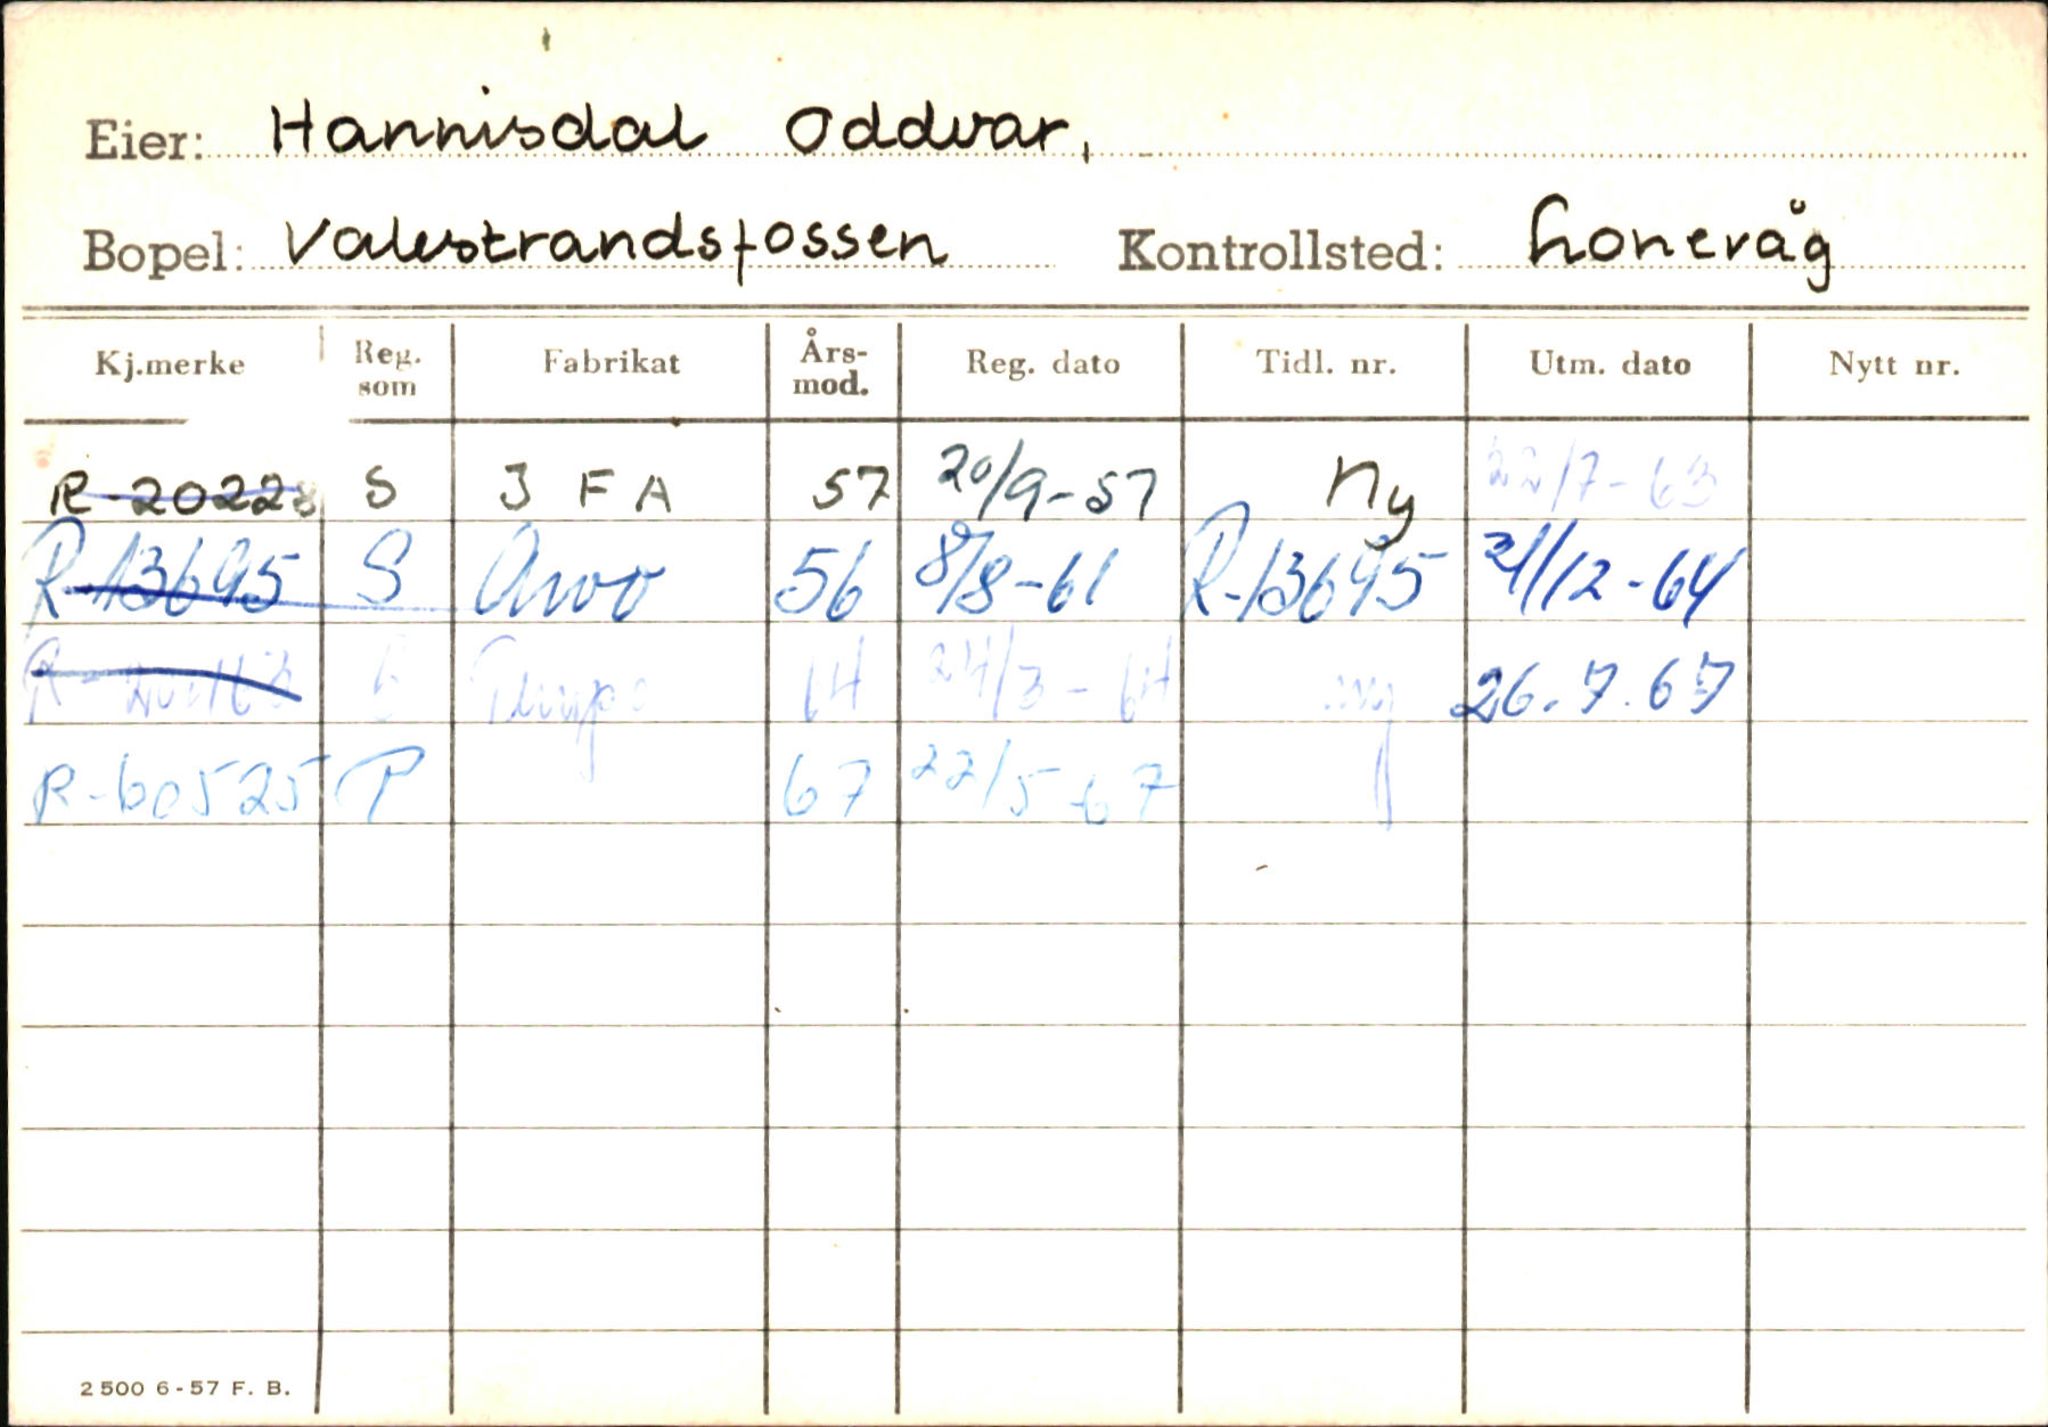 Eier: Hannisdal Oddvar,
Bopel: Valestrandsfossen Kontrollsted: Lonevåg
Kj.merke Reg. som Fabrikat Års-mod. Reg. dato Tidl. nr. Utm. dato Nytt nr.
R-20228 S J F A 57 20/9-57 Ny 22/7-63
R-13695 S Awo 56 8/8-61 R-13695 31/12-64
R- Tempo 64 24/3-64 ny 26.7.67
R-60525 P 67 22/5-67
2500 6-57 F. B.